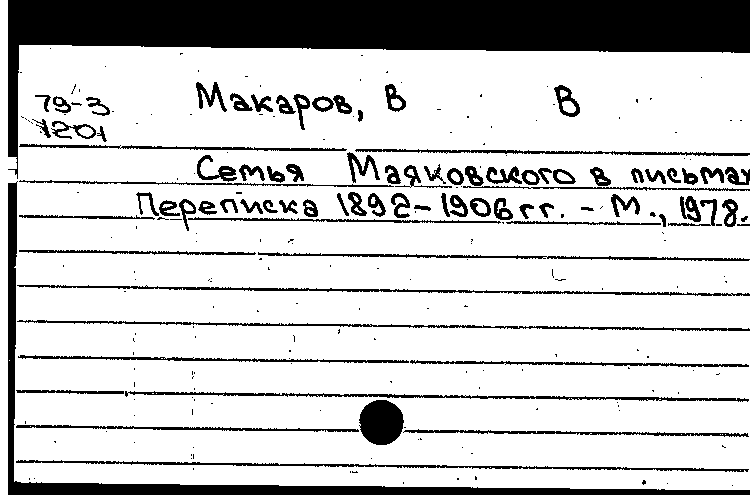 79-3 Макаров, В В
1201
Семья Маяковского в письмах
Переписка 1892-1906 гг. - М., 1978.